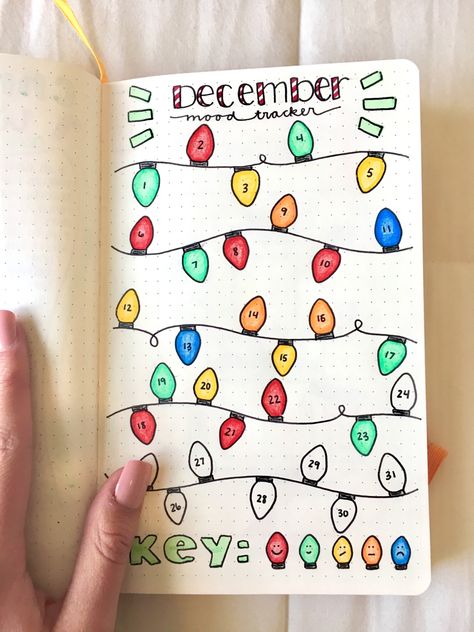 December
mood tracker
1 2 3 4 5
6 7 8 9 10 11
12 13 14 15 16 17
18 19 20 21 22 23 24
26 27 28 29 30 31
Key: